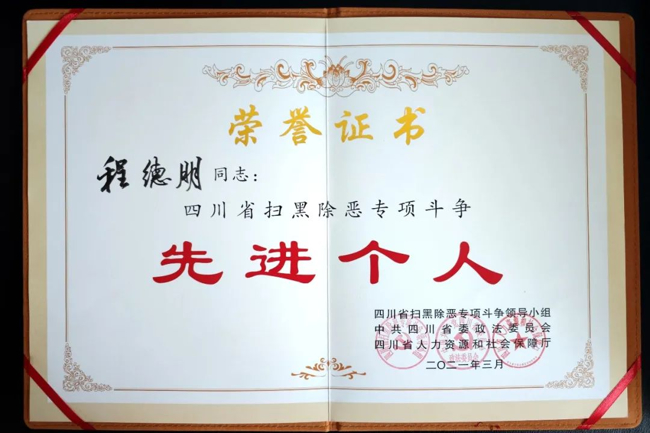 荣誉证书
程德明同志：
四川省扫黑除恶专项斗争
先进个人
四川省扫黑除恶专项斗争领导小组
中共四川省委政法委员会
四川省人力资源和社会保障厅
二〇二一年三月